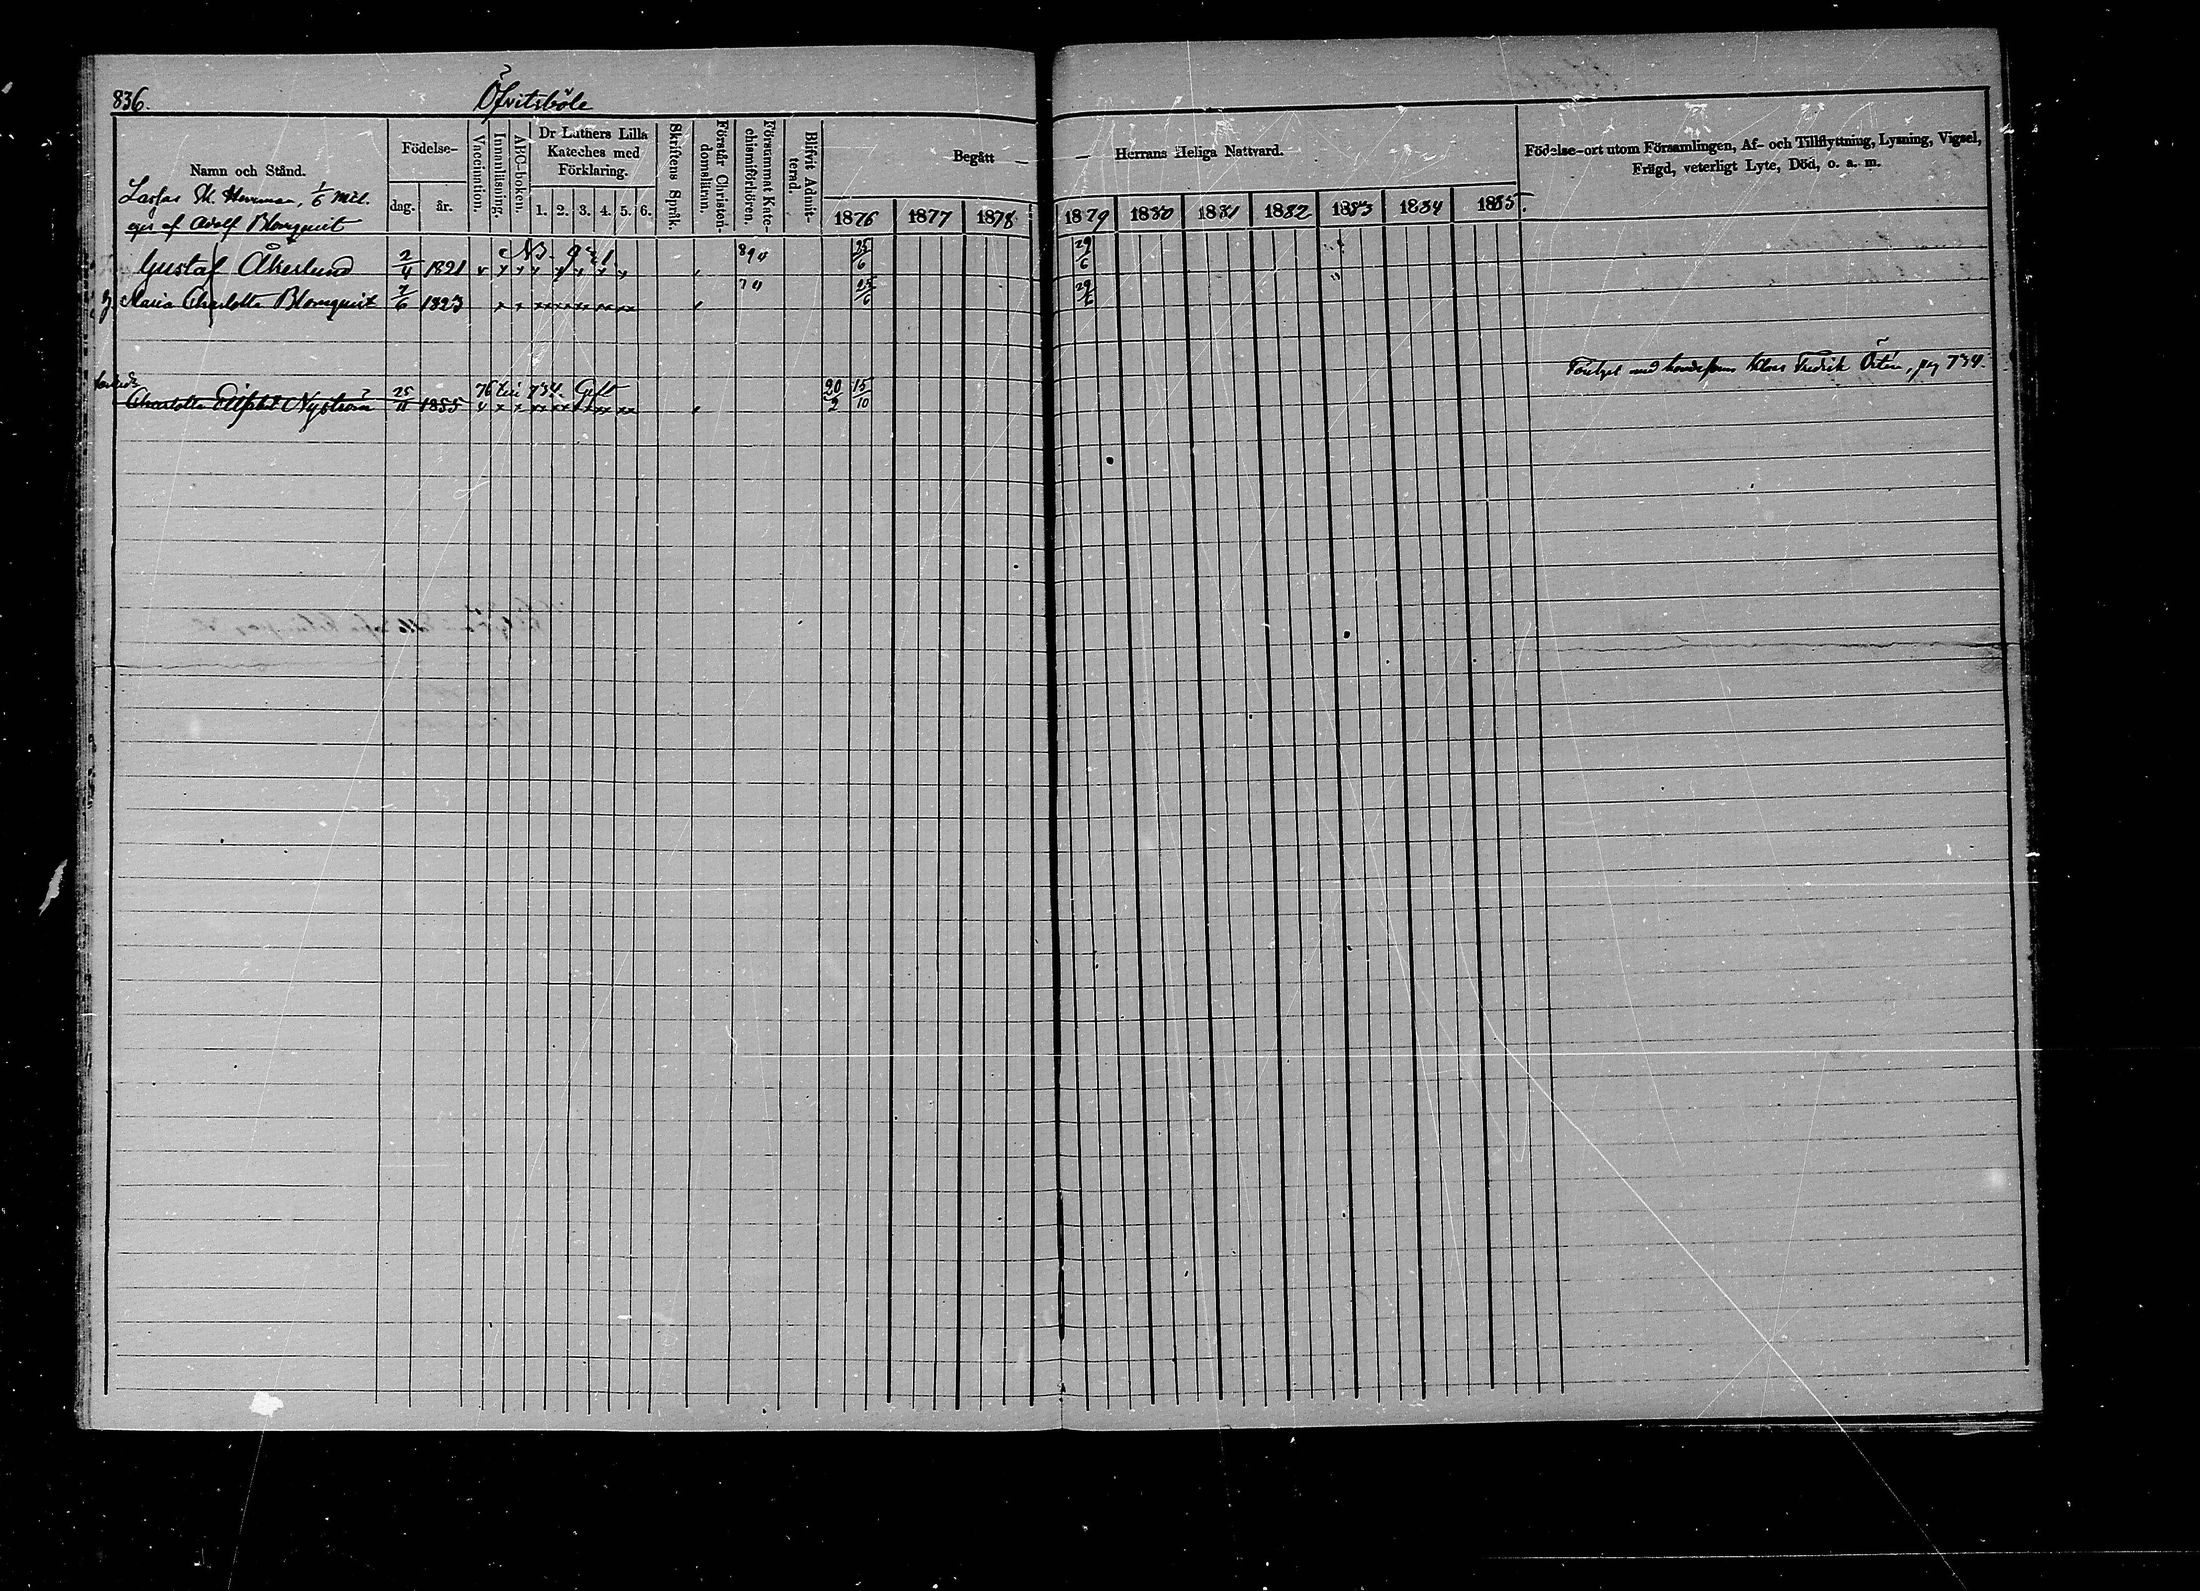 836.
Öfvitsböle
Namn och Stånd.
Födelse-
dag. år.
Vaccination.
Innanläsning.
ABC-boken.
Dr Luthers Lilla
Kateches med
Förklaring.
1. 2. 3. 4. 5. 6.
Skriftens Språk.
Förstår Christen-
domsläran.
Försummat Kate-
chismiförhören.
Blifvit Admit-
terad.
Begått — — Herrans Heliga Nattvard.
1876 1877 1878 1879 1880 1881 1882 1883 1884 1885.
Födelse-ort utom Församlingen, Af- och Tillflyttning, Lysning, Vigsel,
Frägd, veterligt Lyte, Död, o. a. m.
Herrman, 1/6 mtl.
eges af Adolf Blomqvist
Gustaf Åkerlund 2/4 1821 89 25/6 29/6
Maria Charlotta Blomqvist 7/6 1823 7 25/6 29/6
Fredrik pag 734.
Charlotta Nyström 25/11 1855 76 734. Gift 20/2 15/10